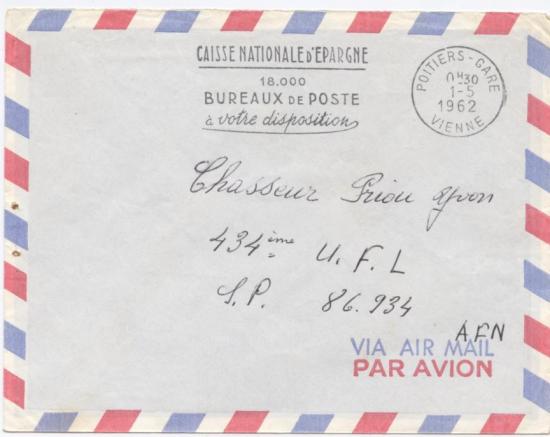 CAISSE NATIONALE d'EPARGNE
18.000
BUREAUX DE POSTE
à votre disposition
POITIERS - GARE
0H30
1-5
1962
VIENNE
Chasseur Priou Yvon
434ème U. F. L
S.P. 86.934
AFN
VIA AIR MAIL
PAR AVION